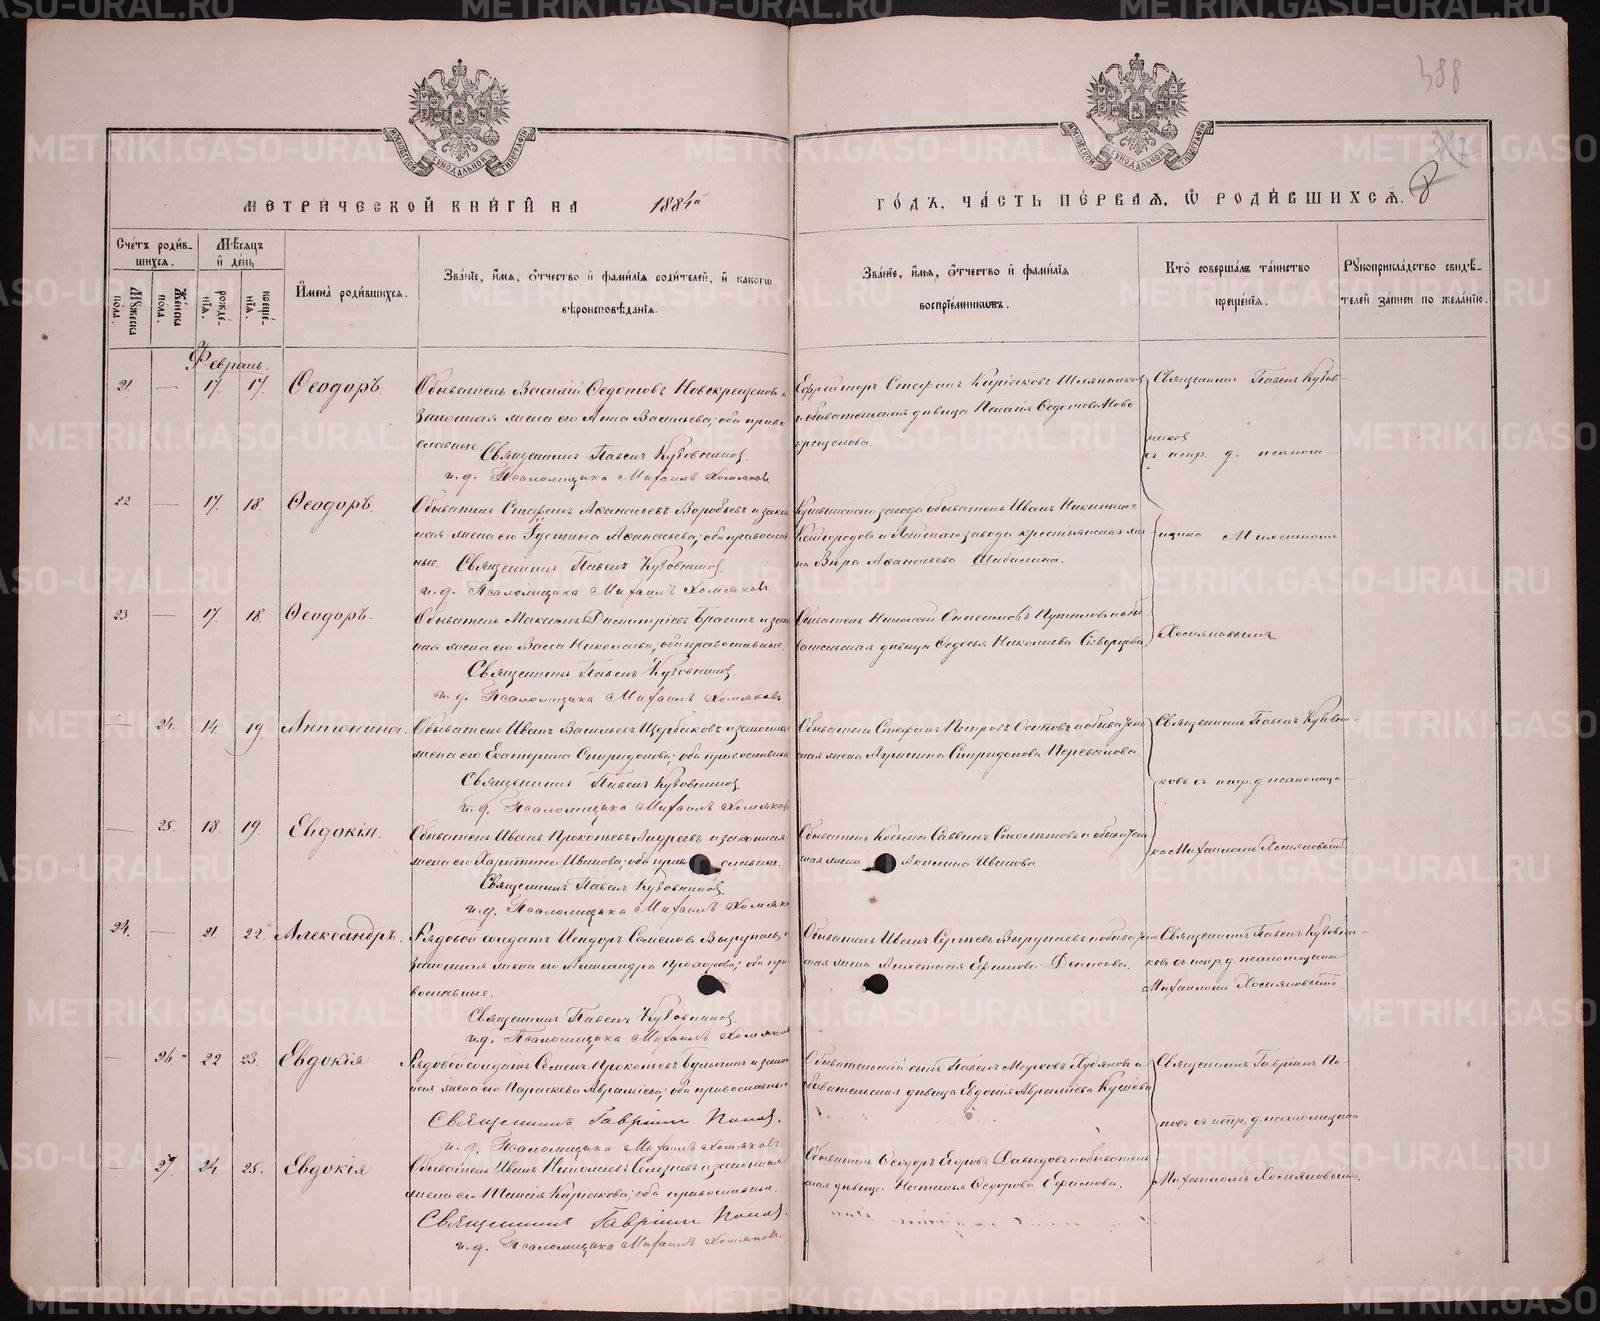 388
МЕТРИЧЕСКОЙ КНИГИ НА 1884й ГОДЪ, ЧАСТЬ ПЕРВАЯ, Ѽ РОДИВШИХСЯ.
8
Счетъ родив-
шихся.
Мѣсяцъ
и день
Мужеска
пола.
Женска
пола.
рожде-
нїя.
креще-
нїя.
Имена родившихся.
Званїе, имя, отчество и фамилїя родителей, и какогѡ
вѣроисповѣданїя.
Званїе, имя, отчество и фамилїя
воспрїемниковъ.
Кто совершалъ таинство
крещенїя.
Рукоприкладство свидѣ-
телей записи по желанїю.
Февраль.
21. — 17. 17. Ѳеодоръ.
Обыватель Василій Ѳедотовъ Новокрещеновъ и
законная жена его Анна Васильева; оба право-
славные
Священникъ Павелъ Кузовников
и. д. Псаломщика Михаилъ Хомяковъ
Ефрейторъ Стефанъ Киріаковъ
и обывательская дѣвица Пелагія Ѳедотова Ново
крещенова.
Священникъ Павелъ Кузов-
ников
съ испр. д. псалом-
22 — 17. 18. Ѳеодоръ.
Обыватель Стефанъ Аѳанасьевъ Воробьевъ и закон
ная жена его Іустина Аѳанасьева; оба православ
ные. Священникъ Павелъ Кузовников
и. д. Псаломщика Михаилъ Хомяковъ.
Кушвинскаго завода обыватель Иванъ Никитинъ
Кайгородовъ и завода крестьянская же
на Вѣра Аѳанасьева Шабалина.
щика Михаиломъ
23. — 17. 18. Ѳеодоръ-
Обыватель Максимъ Димитріевъ Брагинъ и закон
ная жена его Васса Николаева; оба православные.
Священникъ Павелъ Кузовников
и. д. Псаломщика Михаилъ Хомяковъ
Обыватель Николай Онисимовъ Путиловъ и обы
вательская дѣвица Ѳедосья Николаева Скворцова.
Хомяковымъ
— 24. 14. 19. Антонина.
Обыватель Иванъ Васильевъ Щербаковъ и законная
жена его Екатерина Спиридонова; оба православные
Священникъ Павелъ Кузовников
и. д. Псаломщика Михаилъ Хомяковъ
Обыватель Стефанъ Петровъ и обыватель
ская жена Спиридонова Перевалова.
Священникъ Павелъ Кузовни-
ковъ съ испр. д. псаломщи-
— 25. 18. 19. Евдокія.
Обыватель Иванъ Прокопьевъ Андреевъ и законная
жена его Харитина Иванова; оба православные.
Священникъ Павелъ Кузовников
и. д. Псаломщика Михаилъ Хомяков
Обыватель Козьма Саввинъ и обыватель
ская жена Акилина Иванова
ка Михаиломъ Хомяковымъ
24. — 21. 22. Александръ.
Рядовой солдатъ Исидоръ Семеновъ и
законная жена его Александра Прохорова; оба пра
вославные.
Священникъ Павелъ Кузовников
и. д. Псаломщика Михаилъ Хомяков
Обыватель Иванъ Сергѣевъ и обыватель
ская жена Анастасія Ефимова Денисова.
Священникъ Павелъ Кузовни-
ковъ съ испр. д. псаломщика
Михаиломъ Хомяковымъ
— 26 - 22 23. Евдокія
Рядовой солдатъ Семенъ Прокопьевъ и закон
ная жена его Параскева Авраміева; оба православны
Священникъ Гавріилъ Попов.
и. д. Псаломщика Михаилъ Хомяковъ.
Обывательскій сынъ Павелъ Марковъ Худяковъ и
обывательская дѣвица Евдокія Авраміева
Священникъ Гавріилъ По-
повъ съ испр. д. псаломщика
— 27. 24. 25. Евдокія
Обыватель Иванъ Николаевъ Селезневъ и законная
жена его Таисія Киріакова; оба православны.
Священникъ Гавріилъ Попов.
и. д. Псаломщика Михаилъ Хомяков.
Обыватель Ѳеодоръ Егоровъ Давыдовъ и обыватель
ская дѣвица Наталья Ѳедорова Ефимова.
Михаиломъ Хомяковымъ.
METRIKI.GASO-URAL.RU